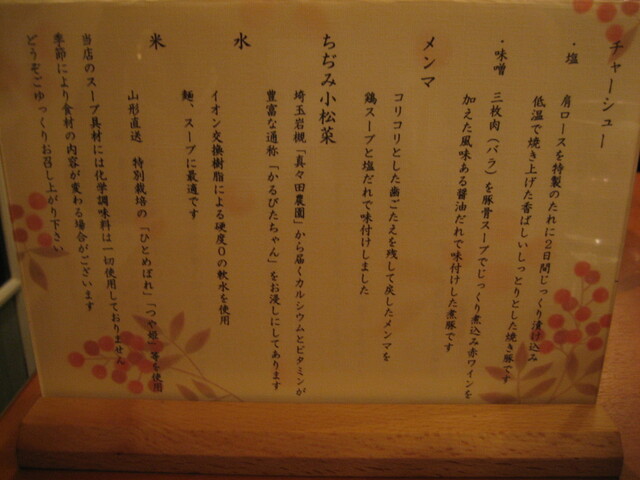 チャーシュー
・塩 肩ロースを特製のたれに2日間じっくり漬け込み
低温で焼き上げた香ばしいしっとりとした焼き豚です
・味噌 三枚肉（バラ）を豚骨スープでじっくり煮込み赤ワインを
加えた風味ある醤油だれで味付けした煮豚です
メンマ
コリコリとした歯ごたえを残して戻したメンマを
鶏スープと塩だれで味付けしました
ちぢみ小松菜
埼玉岩槻「真々田農園」から届くカルシウムとビタミンが
豊富な通称「かるびたちゃん」をお浸しにしてあります
水
イオン交換樹脂による硬度0の軟水を使用
麺、スープに最適です
米
山形直送 特別栽培の「ひとめぼれ」「つや姫」等を使用
当店のスープ具材には化学調味料は一切使用しておりません
季節により食材の内容が変わる場合がございます
どうぞごゆっくりお召し上がり下さい